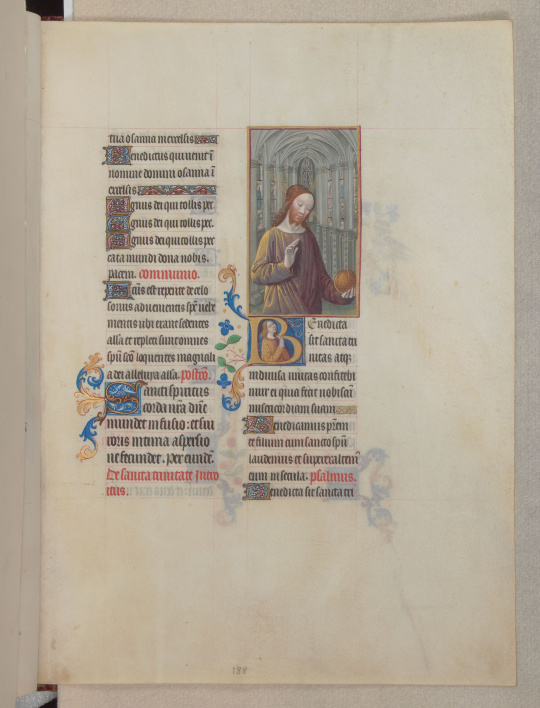 tua osanna in excelsis
Benedictus qui uenit ī
nomine domini osanna ī
excelsis
Agnus dei qui tollis pec
Agnus dei qui tollis pec.
Agnus dei qui tollis pec
cata mundi dona nobis.
pacem. communio.
Factus est repente de celo
sonus aduenientis spūs uehe
mentis ubi erant sedentes
alla et repleti sunt omnes
spū scō loquentes magnali
a dei alleluya alla. postcō.
Sancti spiritus
corda nr̄a dn̄e
mundet infusio: et sui
roris intima aspersio
ne fecundet. per eiusdē.
De sancta trinitate Intro
itus.
Benedicta
sit sancta tri
nitas atq;
indiuisa unitas confitebi
mur ei quia fecit nobiscū
misericordiam suam
Benedicamus prēm
et filium cum sancto spū
laudemus et superexaltemꝰ
eum in secula. psalmus.
Benedicta sit sancta tri
188